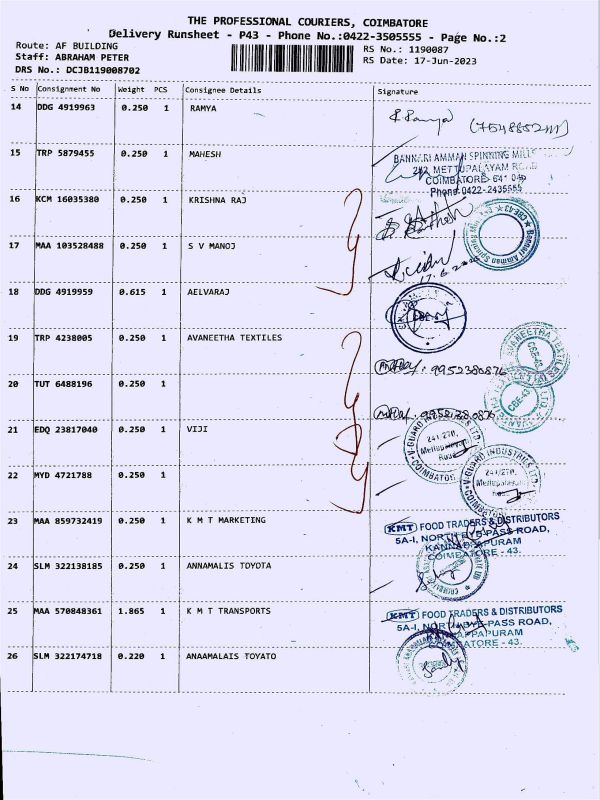 THE PROFESSIONAL COURIERS, COIMBATORE
Delivery Runsheet - P43 - Phone No.:0422-3505555 - Page No.:2
Route: AF BUILDING
Staff: ABRAHAM PETER
DRS No.: DCJB119008702
RS No.: 1190087
RS Date: 17-Jun-2023
S No Consignment No Weight PCS Consignee Details Signature
14 DDG 4919963 0.250 1 RAMYA
15 TRP 5879455 0.250 1 MAHESH
BANNARI AMMAN SPINNING MILLS
242 METTUPALAYAM ROAD
COIMBATORE- 641 043
Phone: 0422-2435555
16 KCM 16035380 0.250 1 KRISHNA RAJ
17 MAA 103528488 0.250 1 S V MANOJ
18 DDG 4919959 0.615 1 AELVARAJ
19 TRP 4238005 0.250 1 AVANEETHA TEXTILES
9952380876
20 TUT 6488196 0.250 1
21 EDQ 23817040 0.250 1 VIJI
V-GUARD INDUSTRIES LTD.
241/270,
Mettupalayam
Road
COIMBATORE
22 MYD 4721788 0.250 1
V-GUARD INDUSTRIES LTD.
241/270,
Mettupalayam
23 MAA 859732419 0.250 1 K M T MARKETING
KMT FOOD TRADERS & DISTRIBUTORS
5A-I, NORTH BYE-PASS ROAD,
KANNAPPAPURAM
COIMBATORE - 43.
24 SLM 322138185 0.250 1 ANNAMALIS TOYOTA
25 MAA 570848361 1.865 1 K M T TRANSPORTS
KMT FOOD TRADERS & DISTRIBUTORS
5A-I, NORTH BYE-PASS ROAD,
KANNAPPAPURAM
COIMBATORE - 43.
26 SLM 322174718 0.220 1 ANAAMALAIS TOYATO